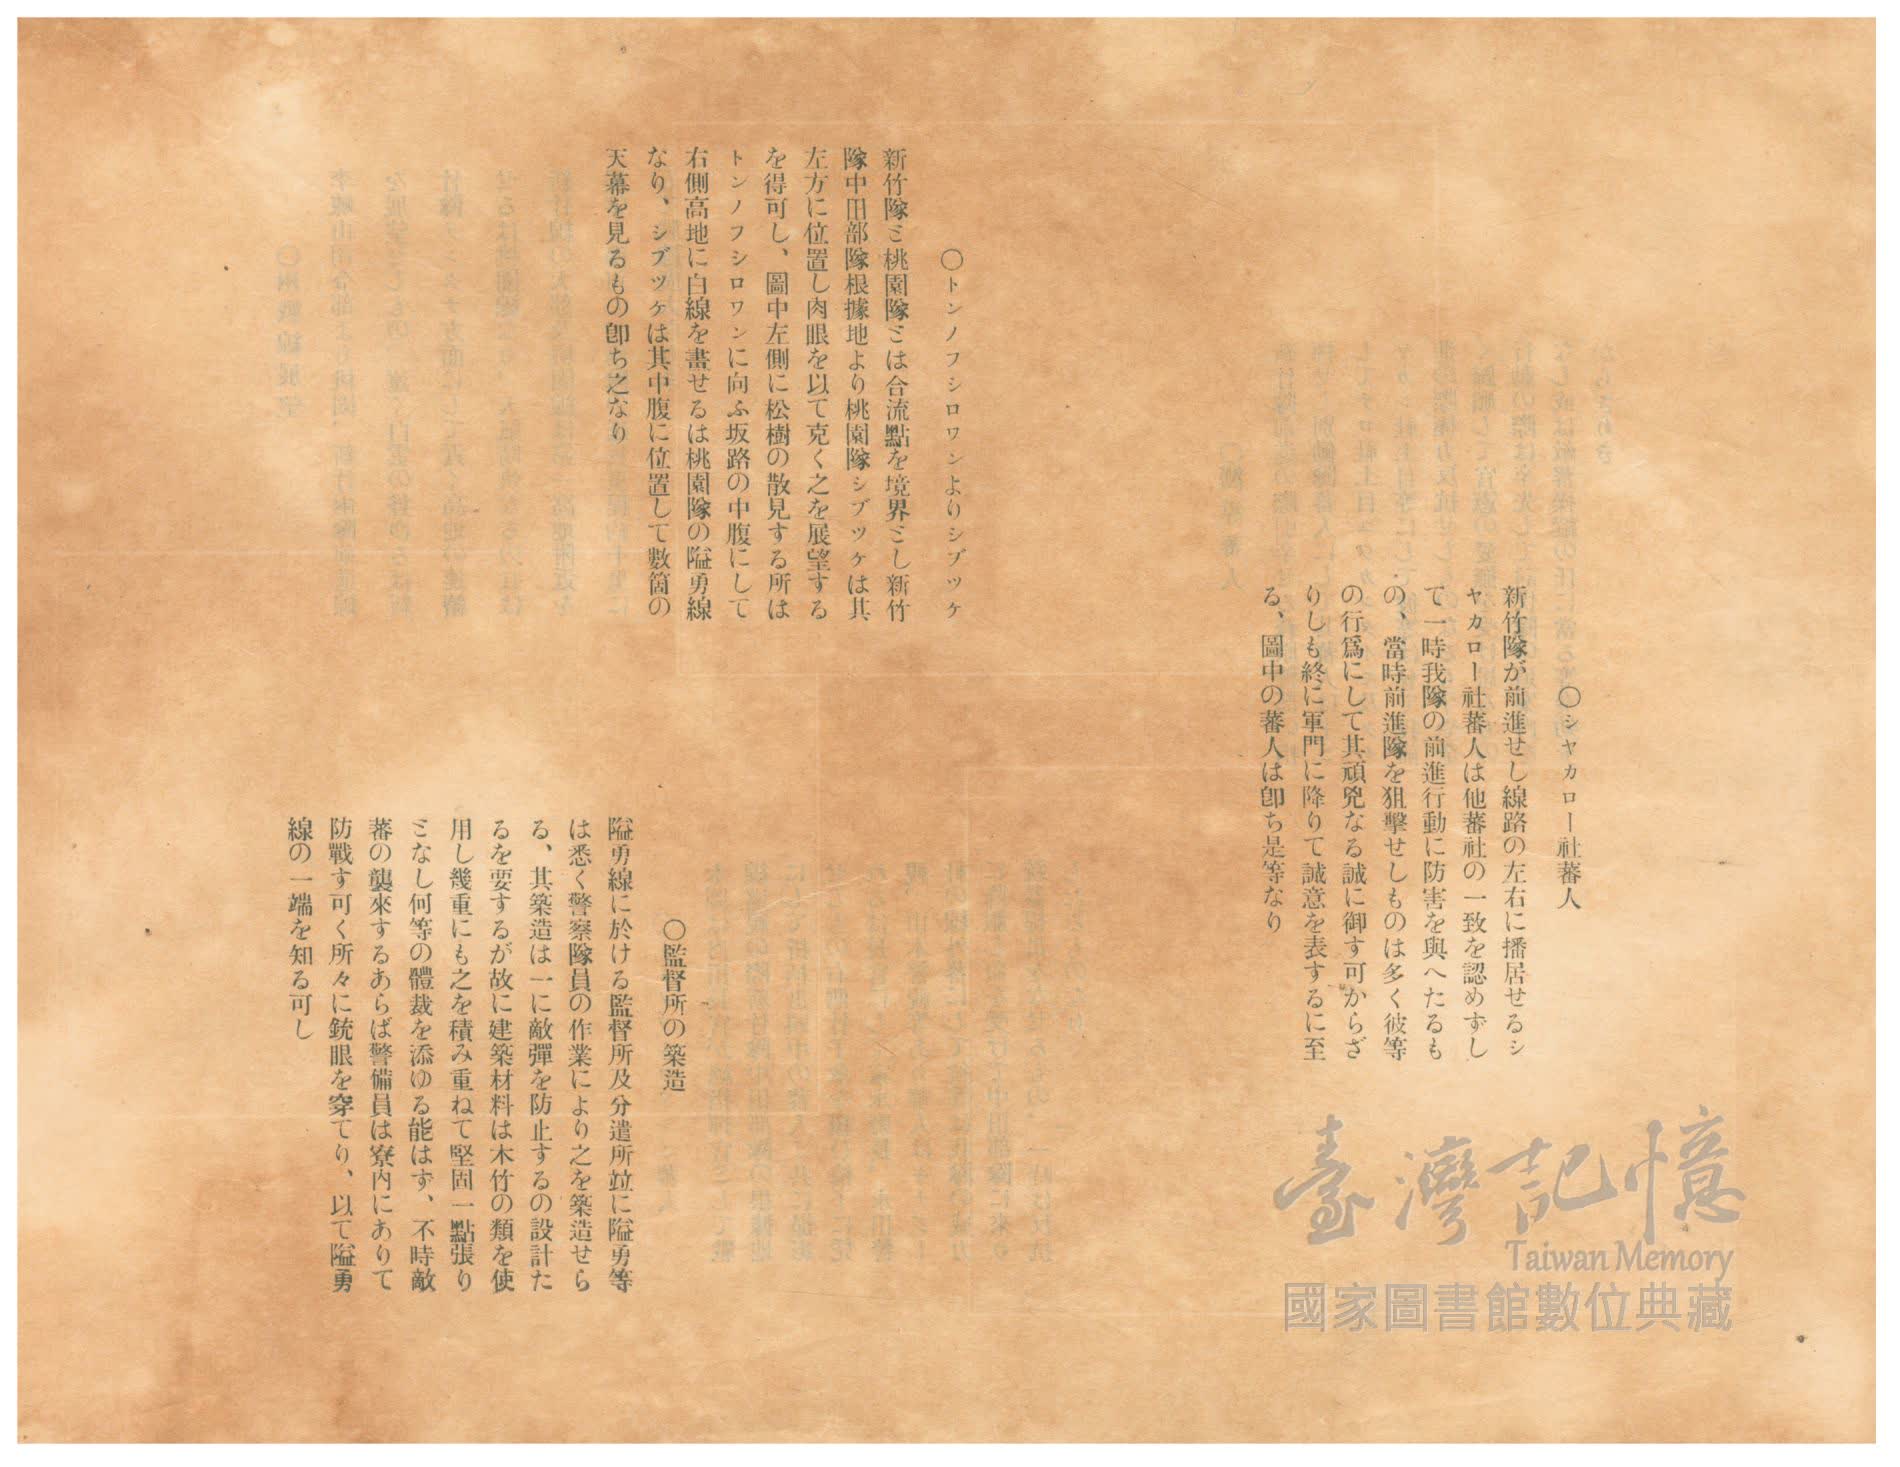 〇シヤカロー社蕃人
新竹隊が前進せし線路の左右に播居せるシ
ヤカロー社蕃人は他蕃社の一致を認めずし
て一時我隊の前進行動に防害を與へたるも
の、當時前進隊を狙擊せしものは多く彼等
の行爲にして其頑兇なる誠に御す可からざ
りしも終に軍門に降りて誠意を表するに至
る、圖中の蕃人は卽ち是等なり
〇トンノフシロワンよりシブツケ
新竹隊ミ桃園隊ミは合流點を境界ミし新竹
隊中田部隊根據地より桃園隊シブツケは其
左方に位置し肉眼を以て克く之を展望する
を得可し、圖中左側に松樹の散見する所は
トンノフシロワンに向ふ坂路の中腹にして
右側高地に白線を畫せるは桃園隊の隘勇線
なり、シブツケは其中腹に位置して數箇の
天幕を見るもの卽ち之なり
〇監督所の築造
隘勇線に於ける監督所及分遣所竝に隘勇等
は悉く警察隊員の作業により之を築造せら
る、其築造は一に敵彈を防止するの設計た
るを要するが故に建築材料は木竹の類を使
用し幾重にも之を積み重ねて堅固一點張り
ミなし何等の體裁を添ゆる能はず、不時敵
蕃の襲來するあらば警備員は寮內にありて
防戰す可く所々に銃眼を穿てり、以て隘勇
線の一端を知る可し
臺灣記憶
Taiwan Memory
國家圖書館數位典藏